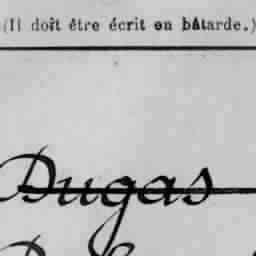 (Il doit être écrit en bâtarde.)
Dugas